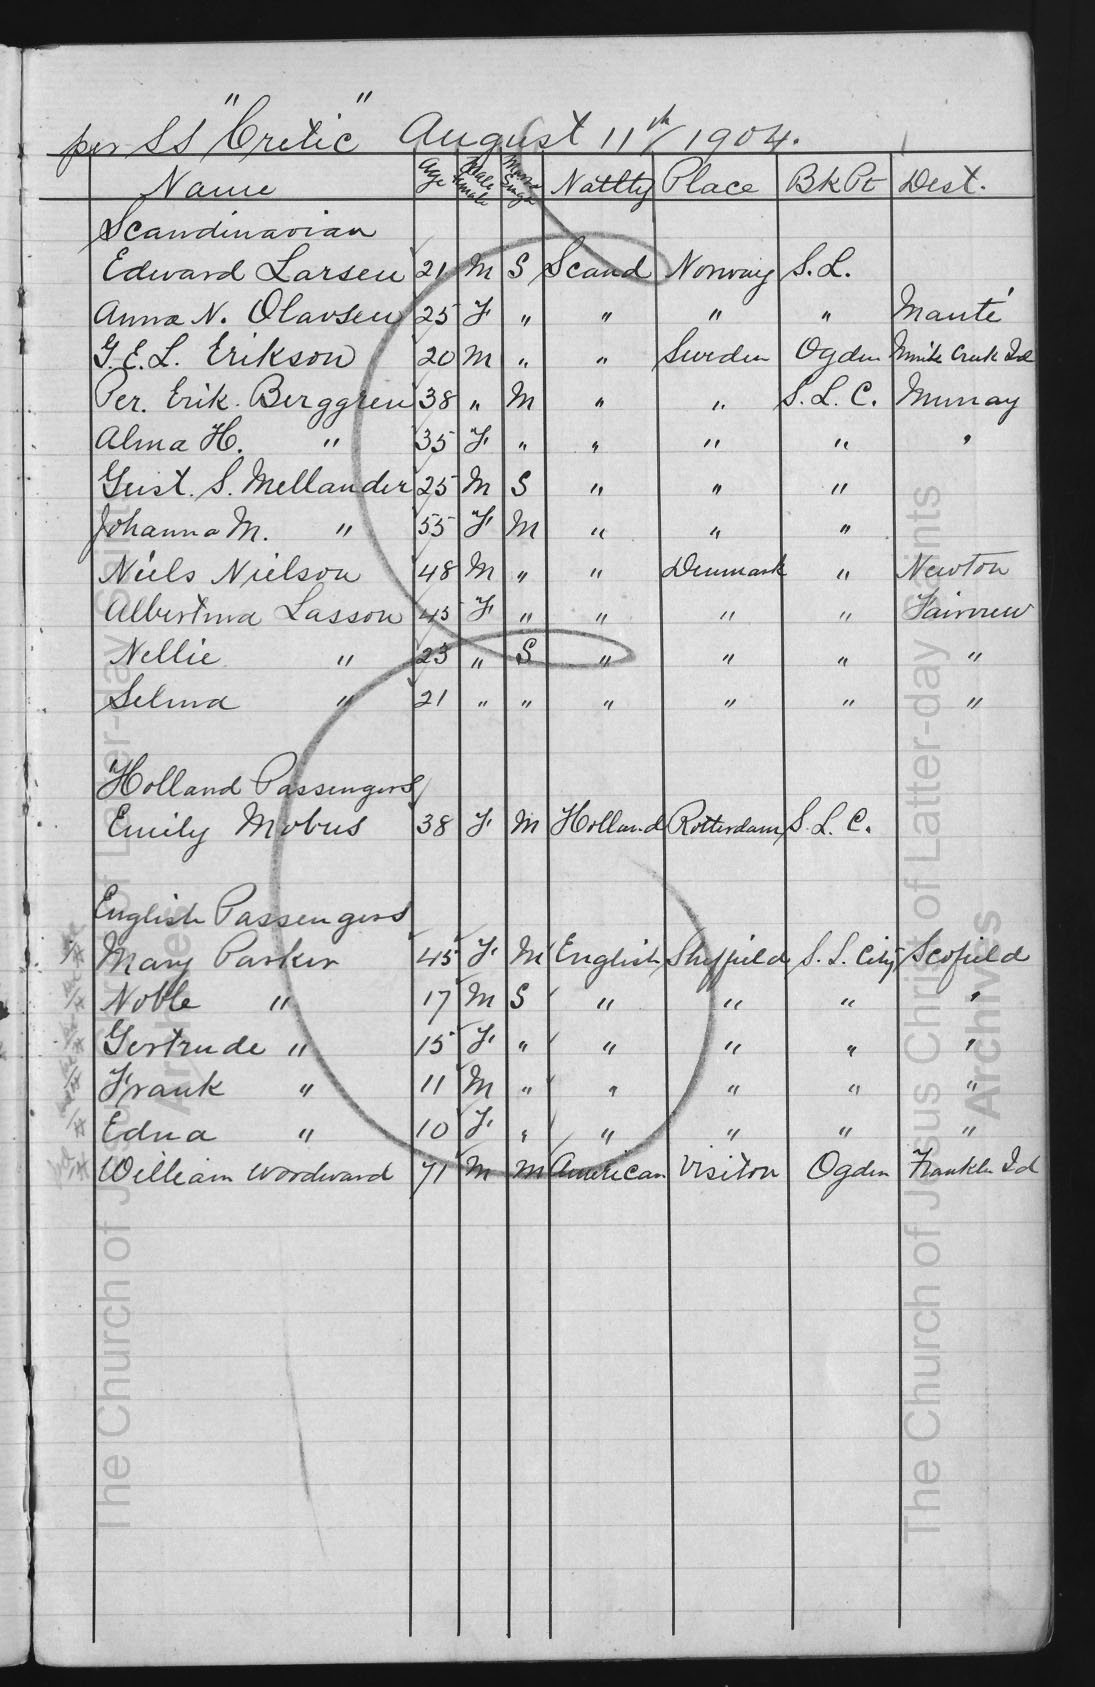 per SS "Cretic" August 11th 1904.
Name Age Male Female Marr Single Natlty Place Bk Pt Dest.
Scandinavian
Edward Larsen 21 M S Scand Norway S.L.
Anna N. Olavsen 25 F " " " " Manti
G.E.L. Erikson 20 M " " Sweden Ogden Creek Id
Per. Erik Berggren 38 " M " " S.L.C. Murray
Alma H. " 35 F " " " " "
Gust. S. Mellander 25 M S " " "
Johanna M. " 55 F M " " "
Niels Nielson 48 M " " Denmark " Newton
Albertina Lasson 45 F " " " " Fairview
Nellie " 23 " S " " " "
Selma " 21 " " " " " "
Holland Passengers
Emily Mobus 38 F M Holland Rotterdam S.L.C.
English Passengers
Mary Parker 45 F M English Sheffield S.L. City Scofield
Noble " 17 M S " " " "
Gertrude " 15 F " " " " "
Frank " 11 M " " " " "
Edna " 10 F " " " " "
William Woodward 71 M M American Visitor Ogden Franklin Id
The Church of Jesus Christ of Latter-day Saints
Archives
The Church of Jesus Christ of Latter-day Saints
Archives